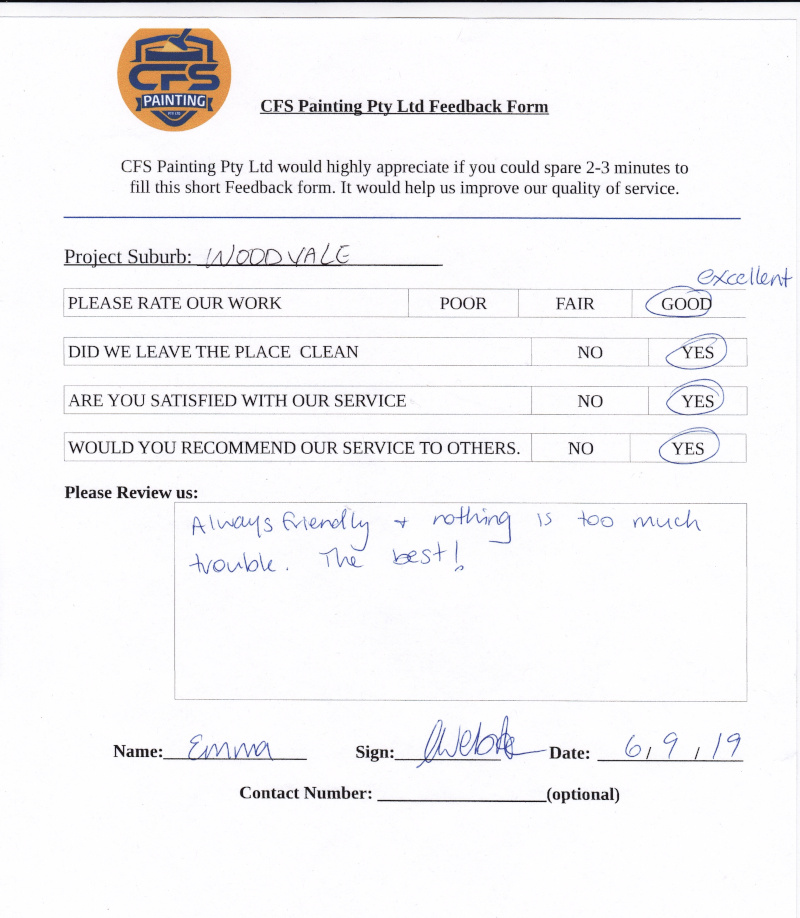 CFS
PAINTING
PTY LTD
CFS Painting Pty Ltd Feedback Form
CFS Painting Pty Ltd would highly appreciate if you could spare 2-3 minutes to
fill this short Feedback form. It would help us improve our quality of service.
Project Suburb: WOODVALE
excellent
PLEASE RATE OUR WORK POOR FAIR GOOD
DID WE LEAVE THE PLACE CLEAN NO YES
ARE YOU SATISFIED WITH OUR SERVICE NO YES
WOULD YOU RECOMMEND OUR SERVICE TO OTHERS. NO YES
Please Review us:
Always friendly + nothing is too much
trouble. The best!
Name: Emma Sign: Date: 6/9/19
Contact Number: (optional)